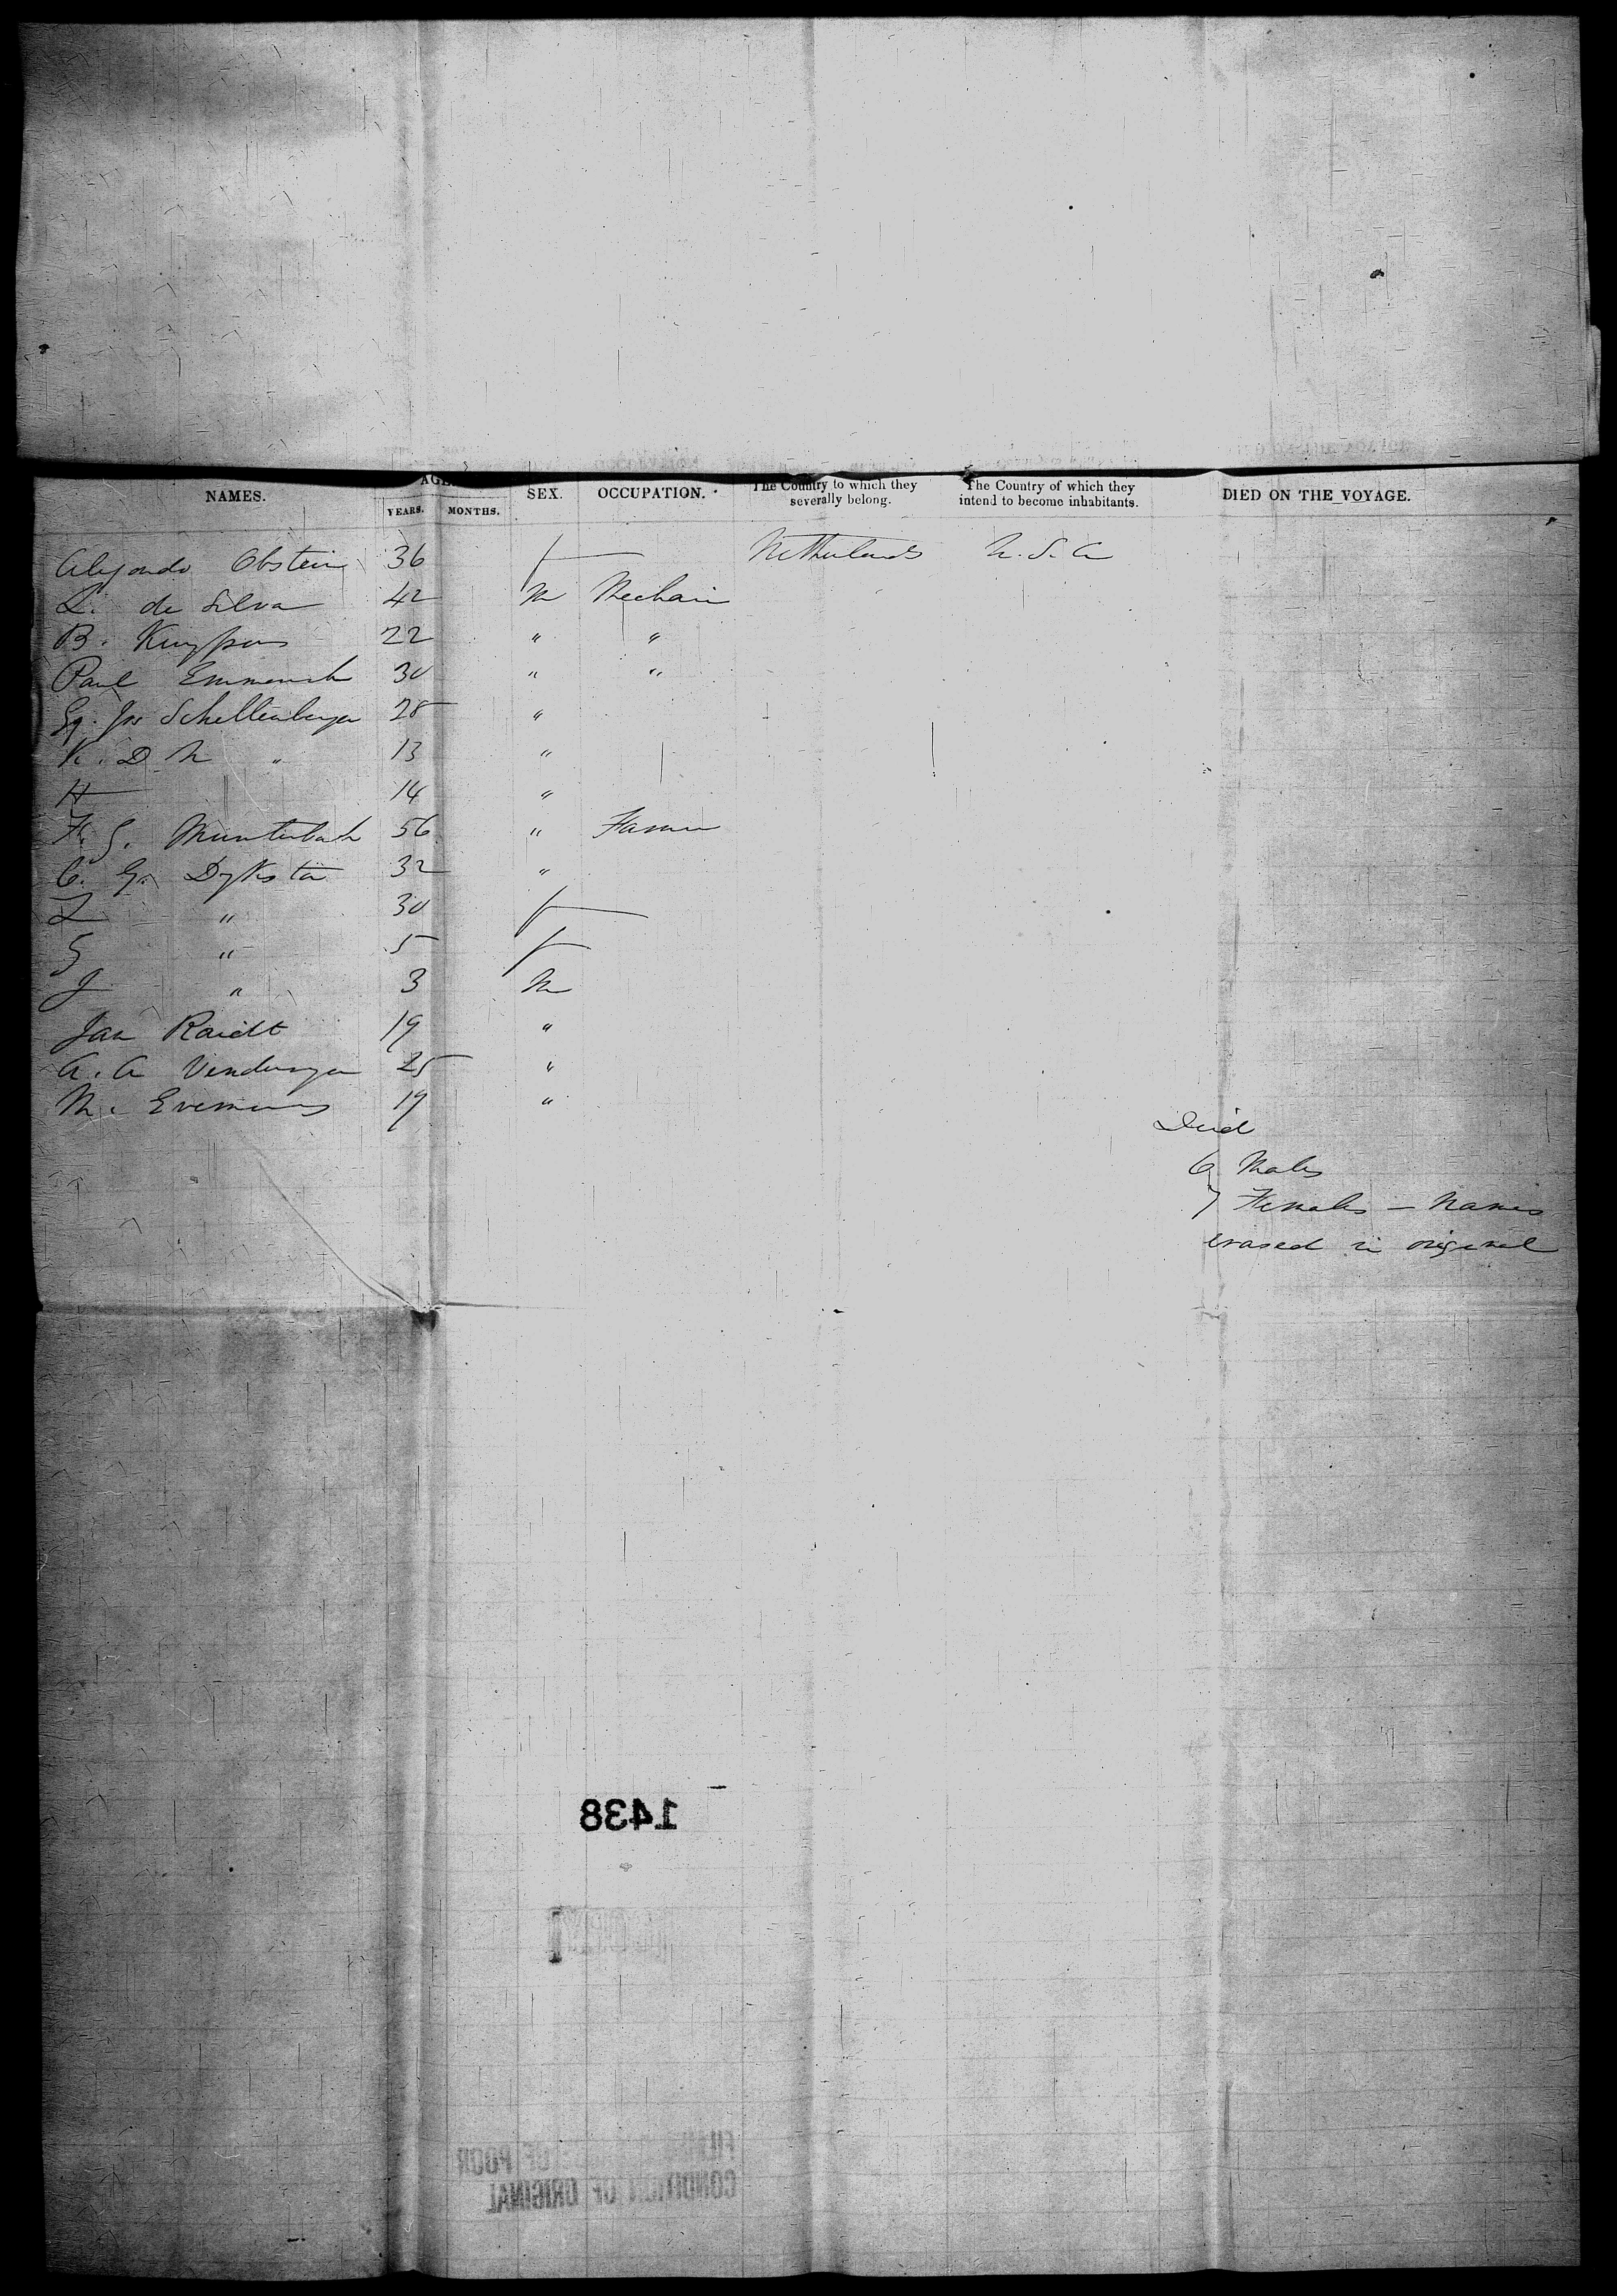 NAMES. AGE. SEX. OCCUPATION. The Country to which they severally belong. The Country of which they intend to become inhabitants. DIED ON THE VOYAGE.
YEARS. MONTHS.
Obstein 36 f Netherlands U.S.A
L. de Silva 42 M Mechani
B. Kuypers 22 " "
Paul Emmench 30 " "
Schellenberger 28 "
K. D. M " 13 "
H 14 "
F. G. Munterbach 56 " Farmer
C. G. Dykstra 32 "
Z " 30 f
G " 5 f
J " 3 M
Jan Raidt 19 "
A. A 25 "
M. 19 "
Died
6 Males
7 Females — Names
erased in original
1438
CONDITION OF ORIGINAL
OF POOR